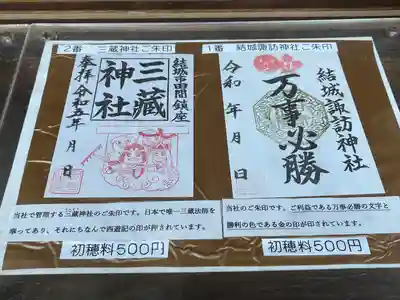 2番　三蔵神社ご朱印
結城市田間鎮座
三藏
神社
奉拝 令和五年 月 日
当社で管理する三蔵神社のご朱印です。日本で唯一三蔵法師を
奉っており、それにちなんで西遊記の印が押されています。
初穂料500円
1番　結城諏訪神社ご朱印
結城諏訪神社
万事必勝
令和 年 月 日
当社のご朱印です。ご利益である万事必勝の文字と
勝利の色である金の印が印されています。
初穂料500円